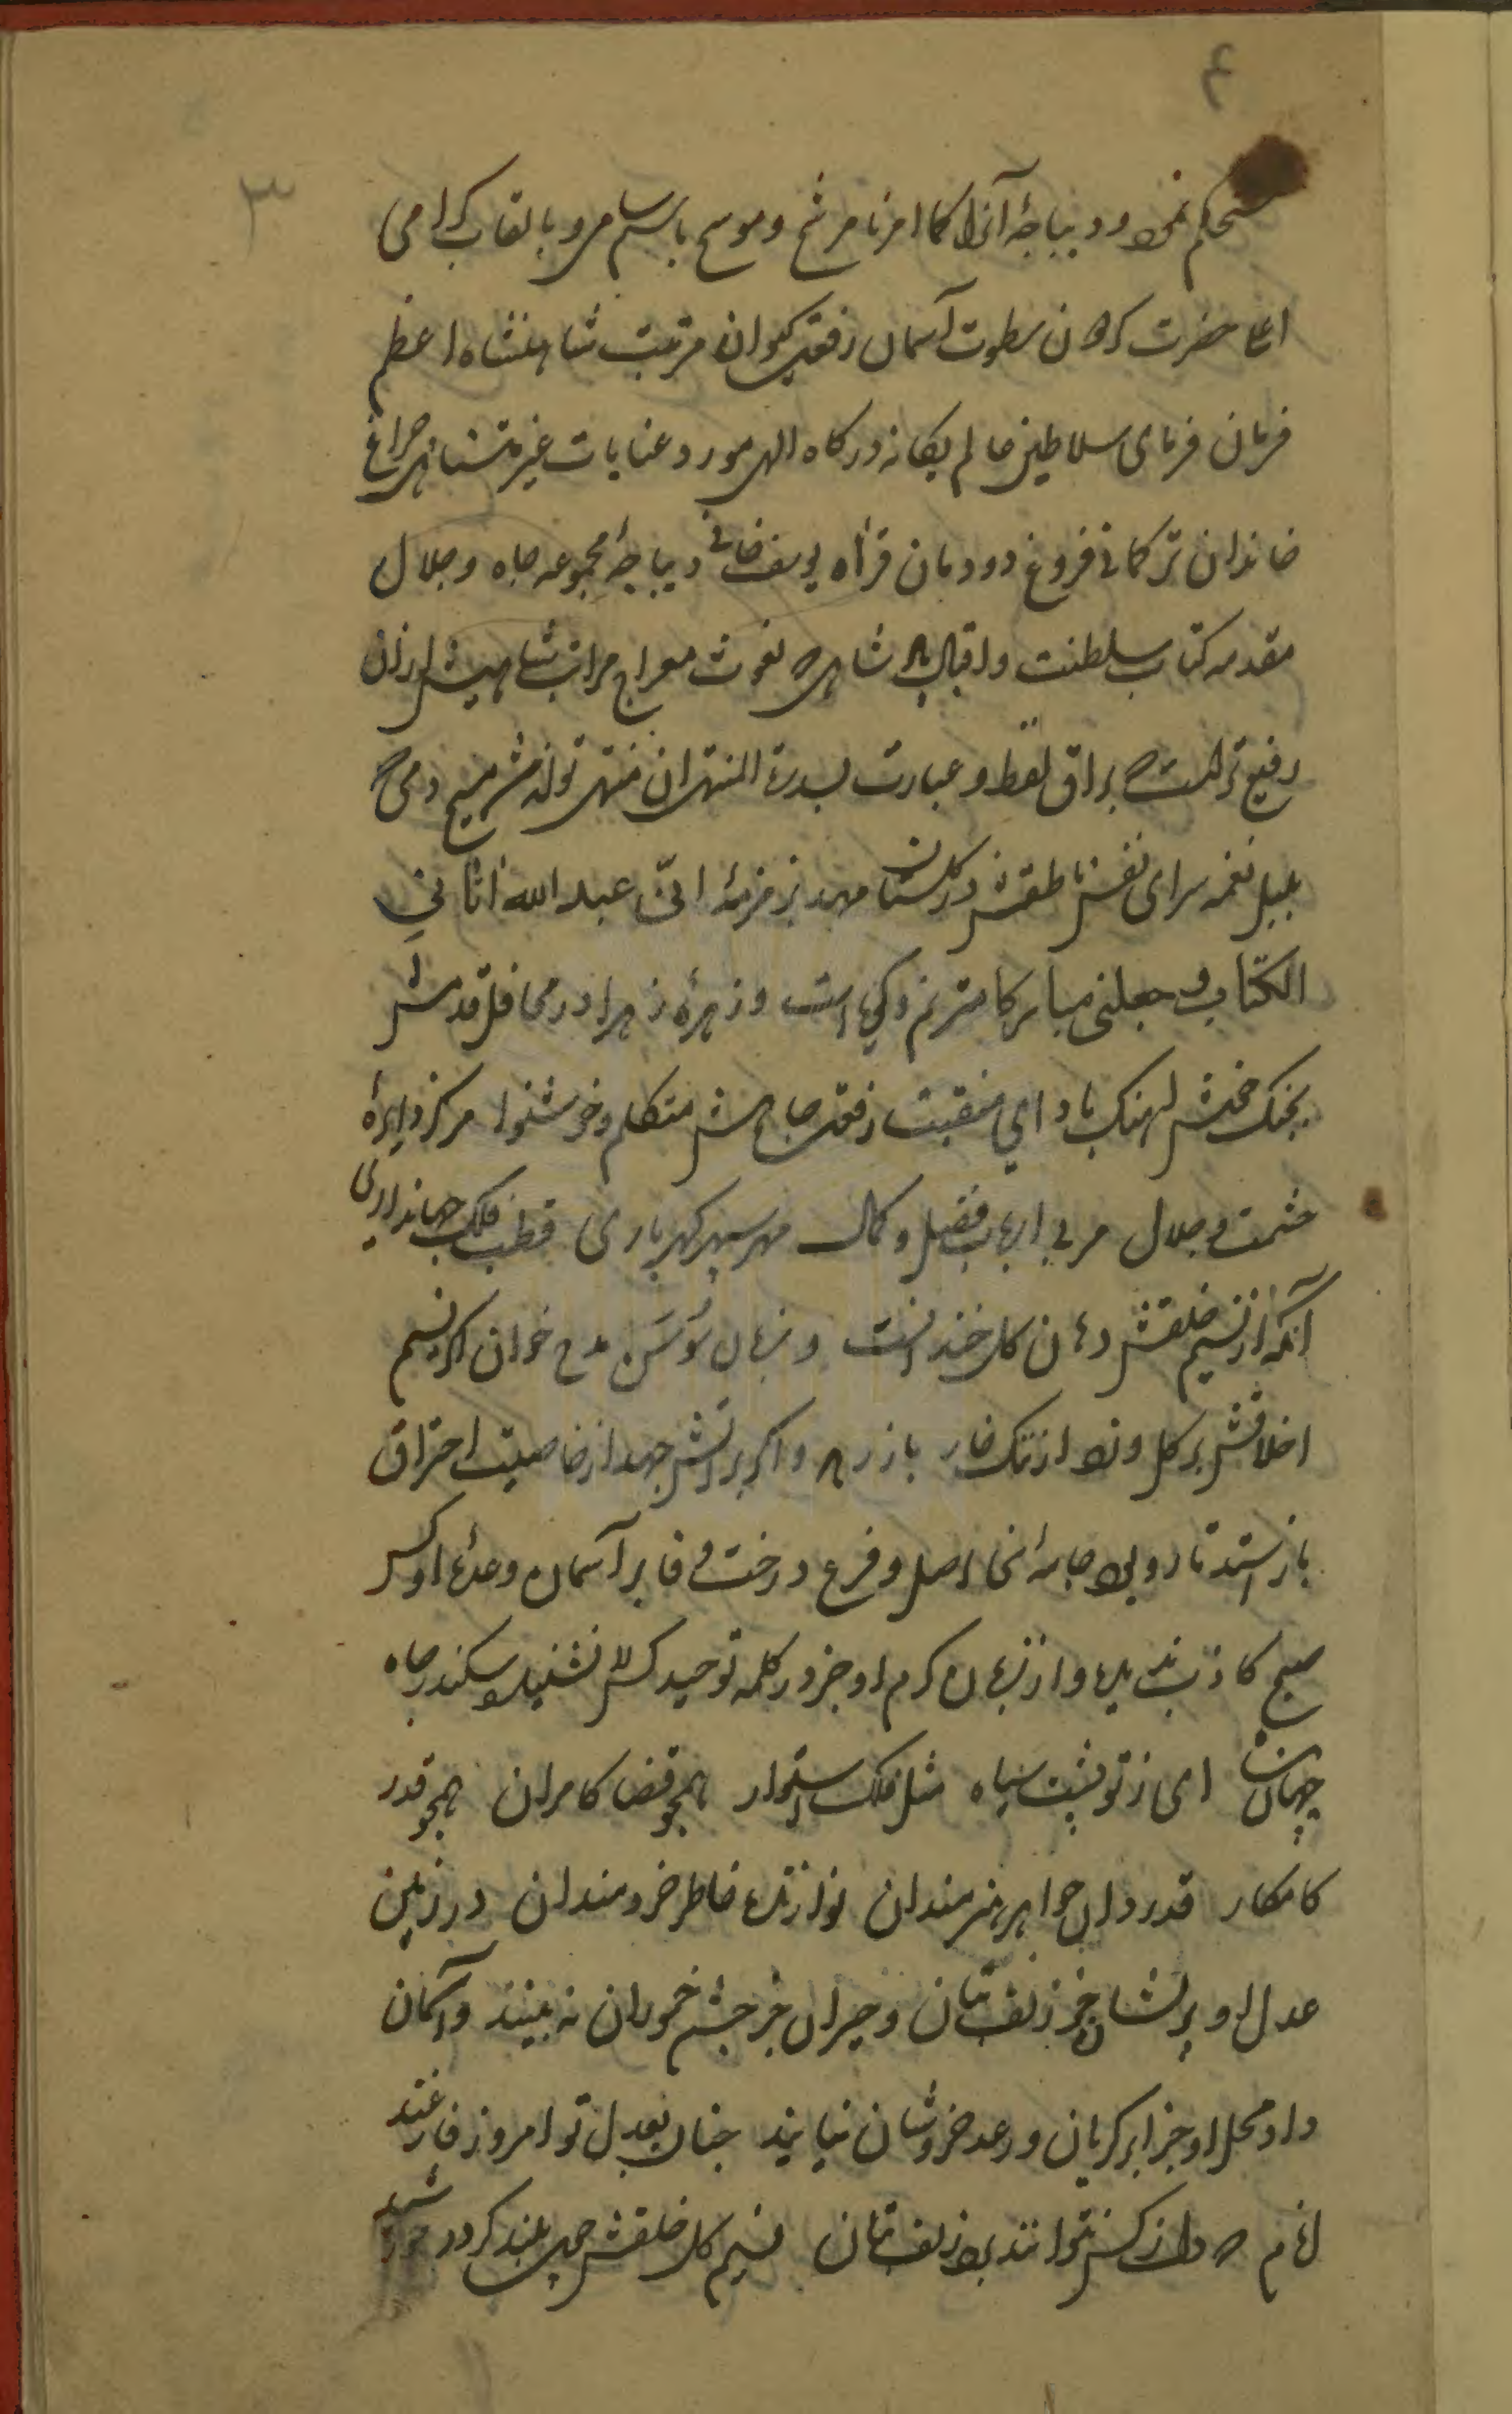 ۴
۳
مستحکم نمود و دیباجهٔ آنرا کما امرنا مرشح وموسح باسم سامی و بالقاب کرامی
اعلا حضرت کردون سطوت آسمان رفعت کیوان مرتبت شاهنشاه اعظم
فرمان فرمای سلاطین عالم یکانه درکاه الهی مورد عنایات غیر متناهی چراغ
خاندان ترکمانی فروغ دودمان قراه یوسف خانی دیباجهٔ مجموعه جاه وجلال
مقدمه کتاب سلطنت واقبال شاهی که نعوت معراج مراتب شاهیش از آن
رفیع تر است که براق لفظ و عبارت بسدرة المنتهی ان منتهی تواند شد مسیح دمی که
بلبل نغمه سرای نفس ناطقش در کلستان مهد بزمزمهٔ انی عبد الله اتانی
الکتاب و جعلنی مبارکا مترنم وکویا است وزهرهٔ زهرا در محافل قدسش
بجنک بادای منقبت رفعت جاهش متکلم وخوشنوا مرکز دایرهٔ
حشمت وجلال مربی ارباب فضل وکمال مهر سپهر شهریاری قطب فلک جهانداری
آنکه از نسیم خلقش دهان کل خندانست وزبان سوسن مدح خوان اکر نسیم
اخلاقش بر کل وزد از ننک خار باز رهد واکر بر آتش جهد از خاصیت احتراق
باز استد تار وپود جامه اش اصل وفرع درخت وفا بر آسمان وعدهٔ او کس
صبح کاذب ندیده واز زبان کرم او جز در کلمه توحید کس لا نشنیده سکندر جاه
جهان ای ز تو پشت سپاه مثل فلک استوار همجو قضا کامران همجو قدر
کامکار قدردان جواهر هنرمندان نوازندهٔ خاطر خردمندان در زمین
عدل او پریشان جز زلف بتان وحیران جز چشم خموران نه بینند وآسمان
داد محل او جز ابر کریان ورعد خروشان نیابند جنان بعدل تو امروز فارغند
انام که دل ز کس نتوانند برد زلف بتان نسیم کل خلقش جون بلند کردد خورشید